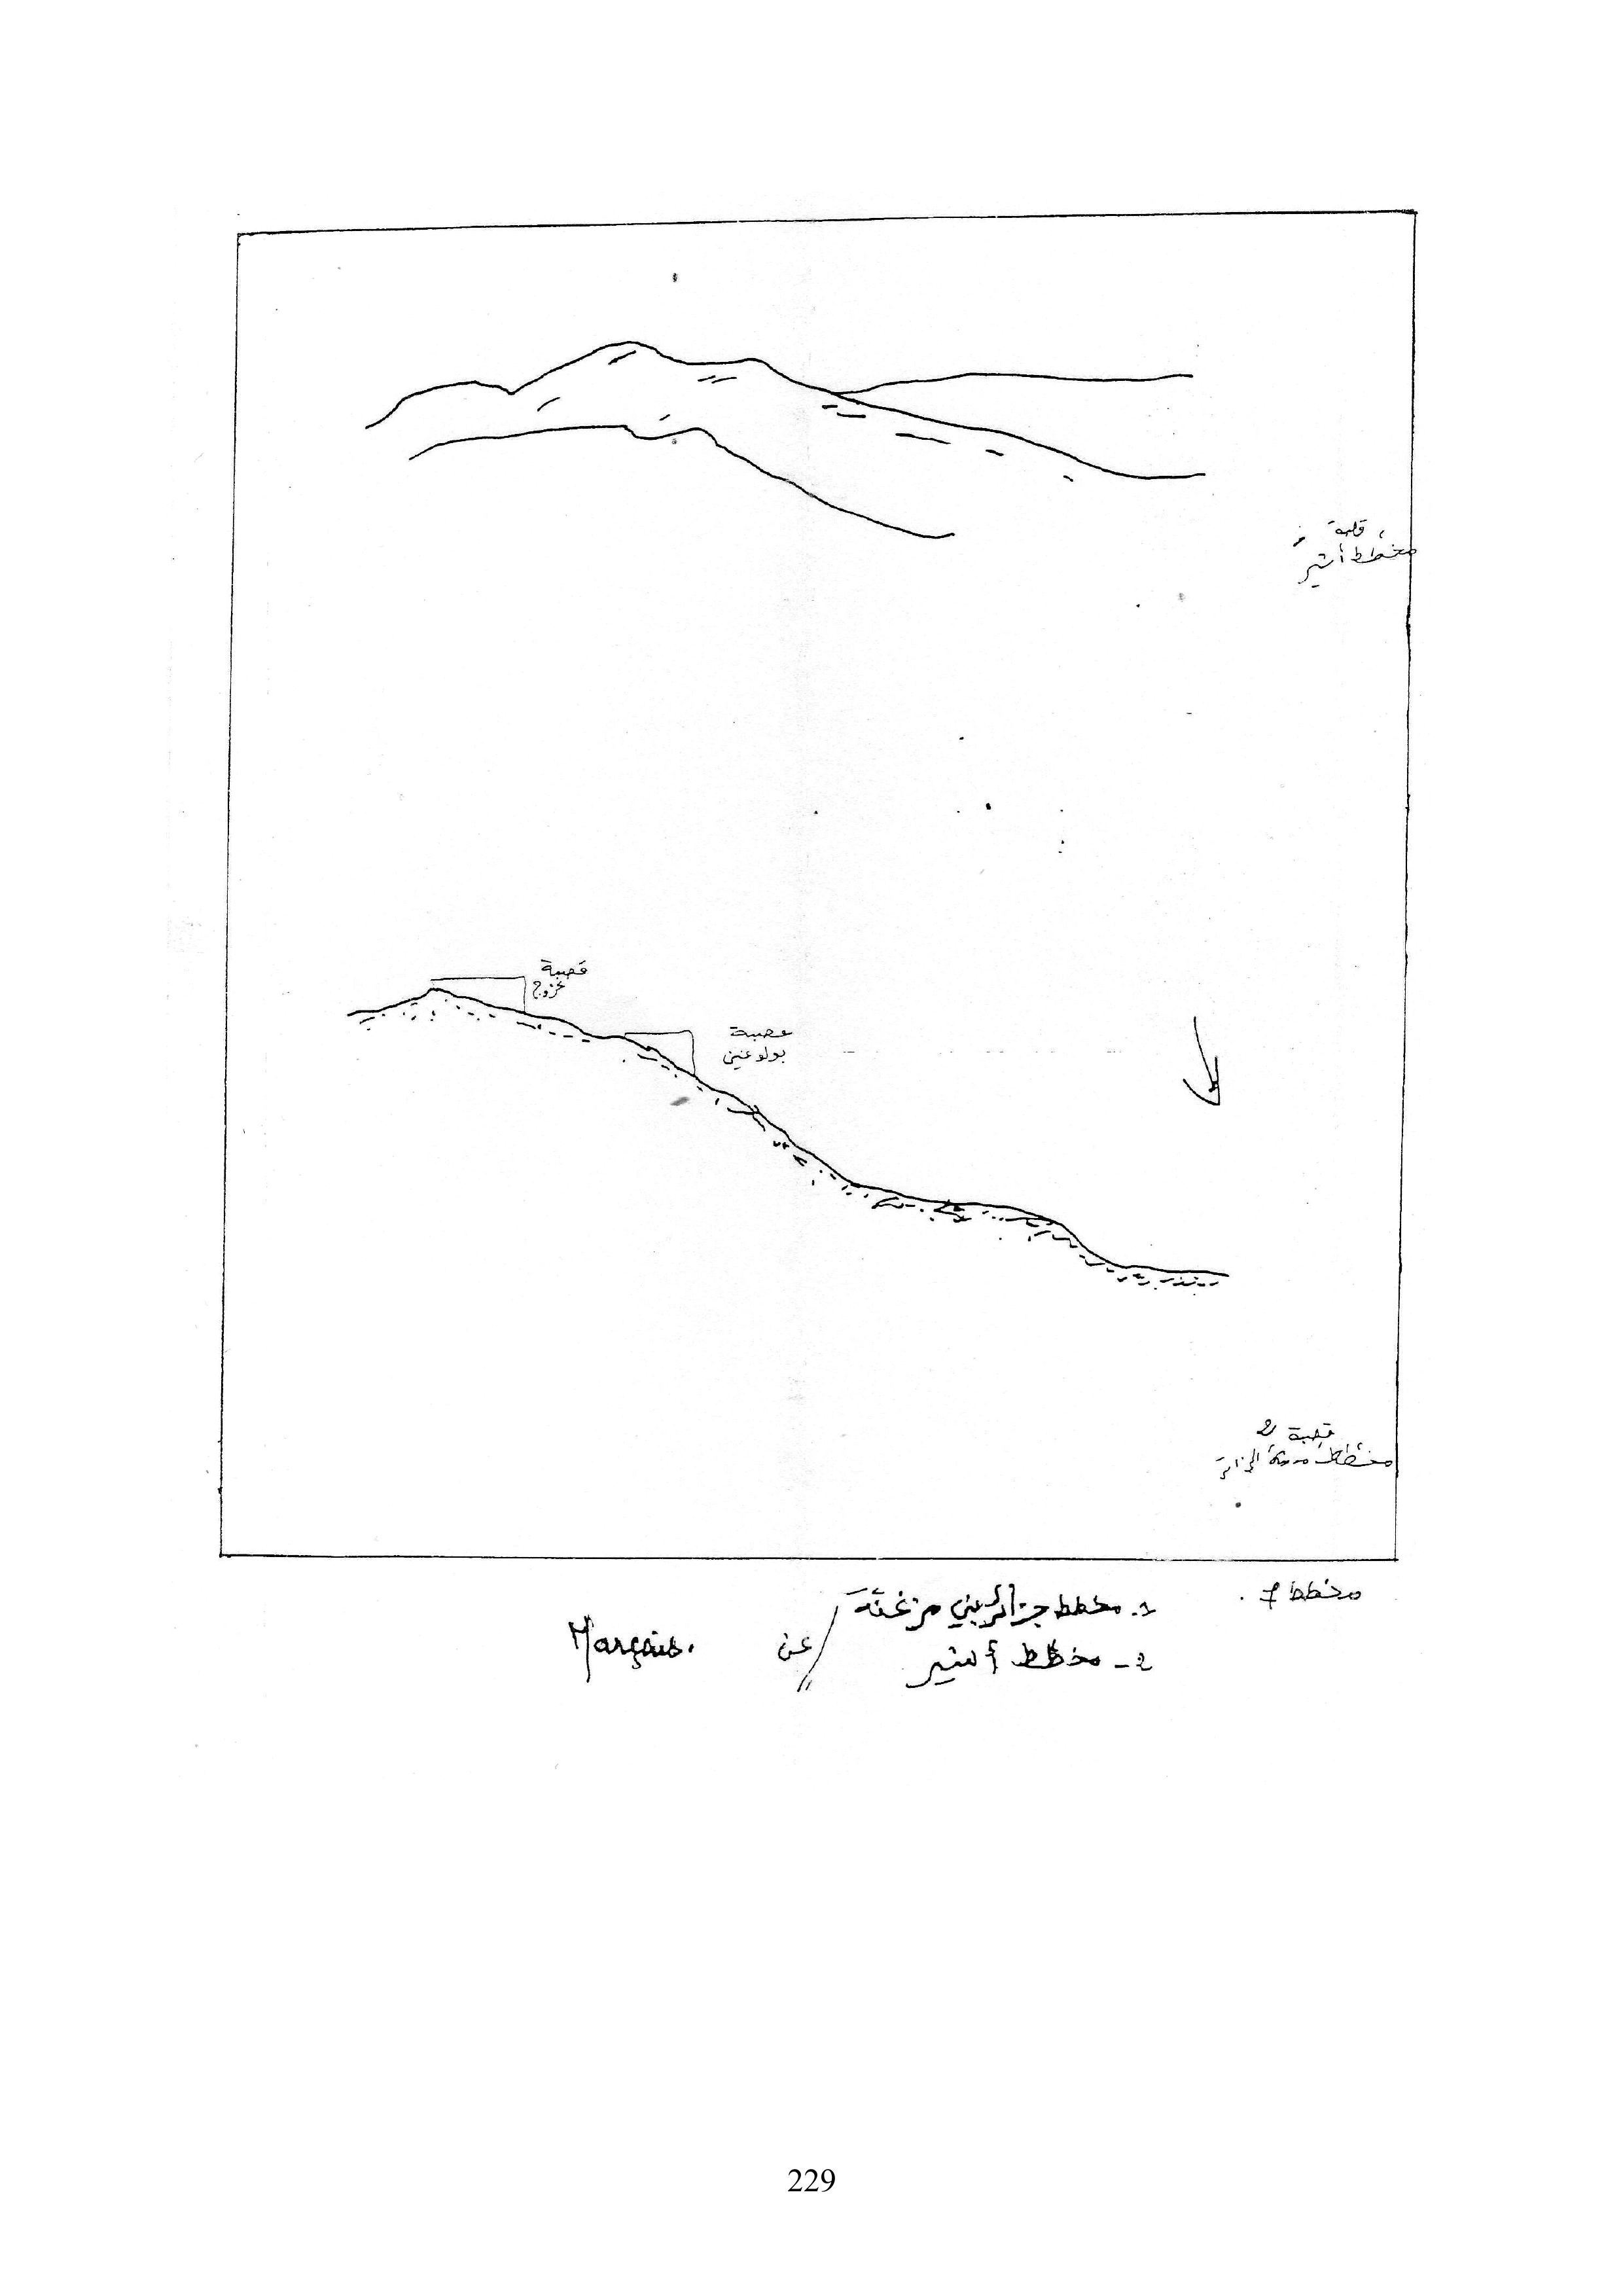 قلعة
مخطط أشير
قصبة
عصبة
بولوغين
قصبة 2
مخطط مدينة الجزائر
مخطط 7.
1. مخطط جزائر بني مزغنة
2- مخطط أشير
عن Marçais.
229